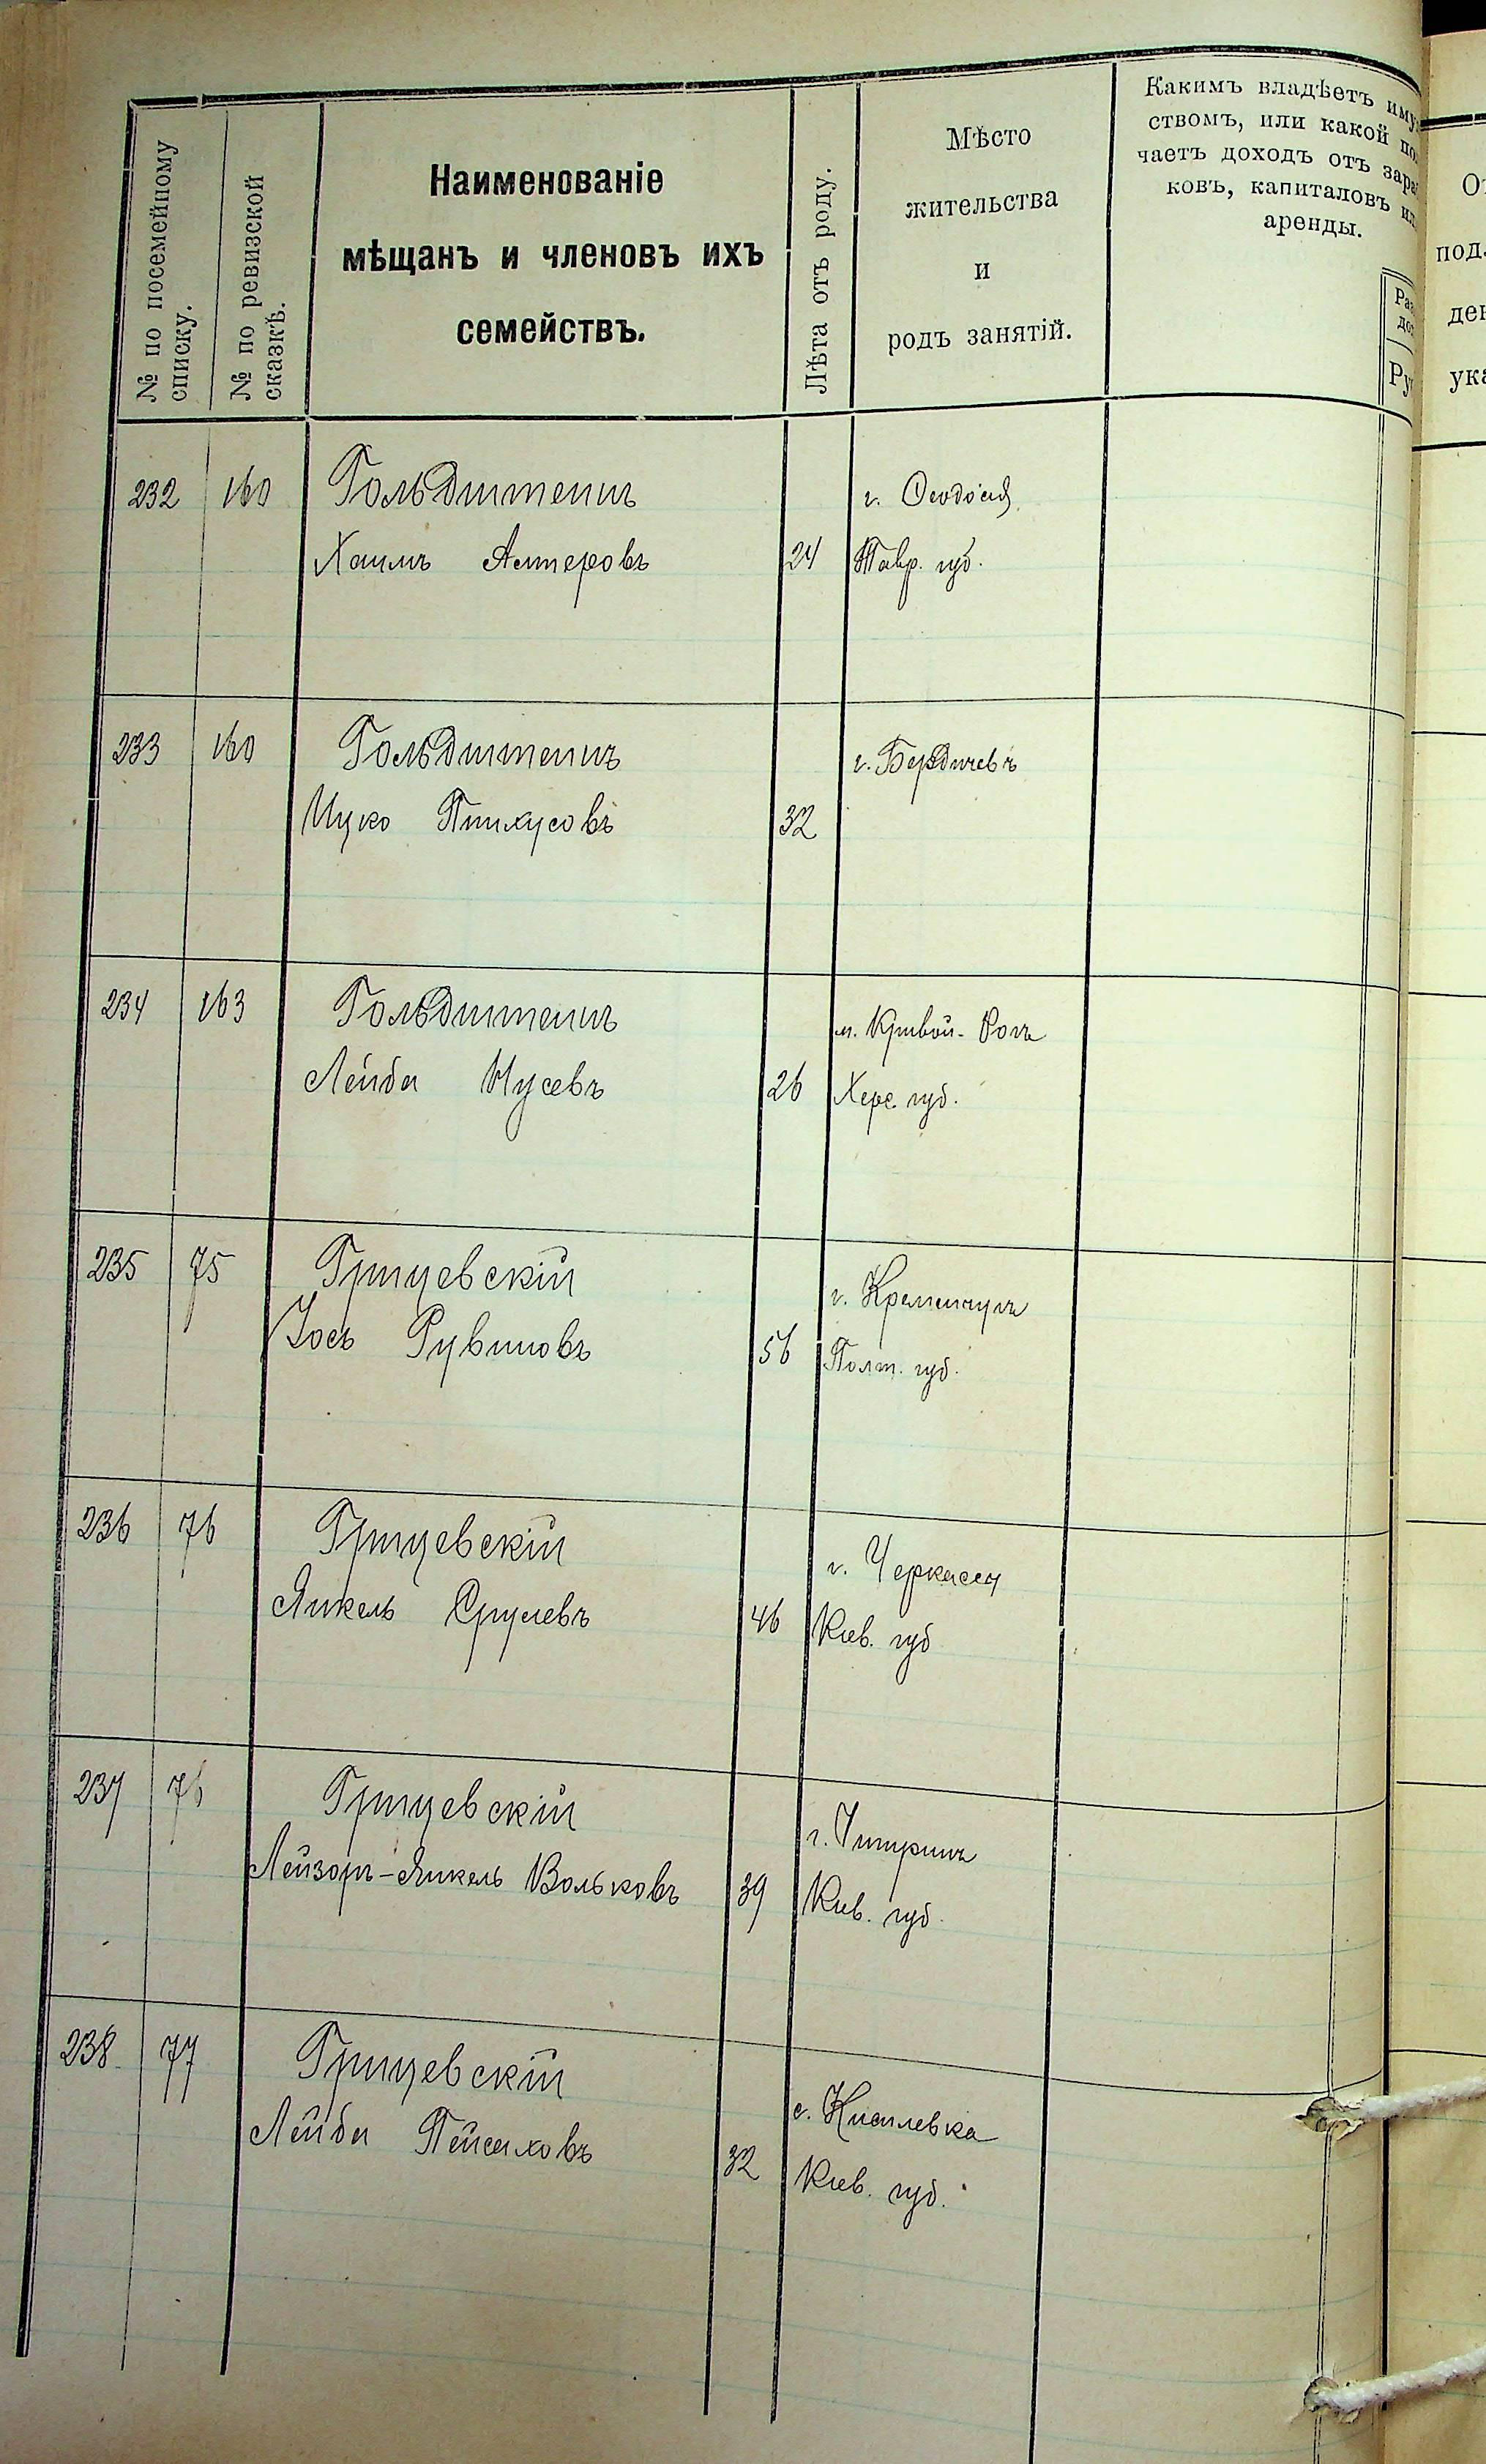 № по посемейному списку.
№ по ревизской сказкѣ.
Наименованіе
мѣщанъ и членовъ ихъ
семействъ.
Лѣта отъ роду.
Мѣсто
жительства
и
родъ занятій.
Какимъ владѣетъ иму
ствомъ, или какой по
чаетъ доходъ отъ зара
ковъ, капиталовъ ил
аренды.
Ру
под
ден
ука
232 160 Гольдштейнъ г. Ѳеодосія
Хаимъ Алтеровъ 24 Тавр. губ.
233 160 Гольдштейнъ г. Бердичевъ
Ицко Пинхусовъ 32
234 163 Гольдштейнъ м. Кривой-Рогъ
Лейба Нусевъ 26 Херс. губ.
235 75 Грицевскій г. Кременчугъ
Іось Рувиновъ 56 Полт. губ.
236 76 Грицевскій г. Черкассы
Янкель Срулевъ 46 Кіев. губ
237 76 Грицевскій г. Чигиринъ
Лейзоръ-Янкель Вольковъ 39 Кіев. губ.
238 77 Грицевскій с. Киселевка
Лейба Пейсаховъ 32 Кіев. губ.